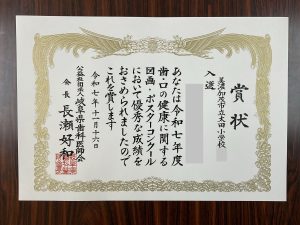 賞状
美濃加茂市立太田小学校
入選
あなたは令和七年度
歯・口の健康に関する
図画・ポスターコンクール
において優秀な成績を
おさめられましたので
これを賞します
令和七年十一月十六日
公益社団法人岐阜県歯科医師会
会長 長瀬好和